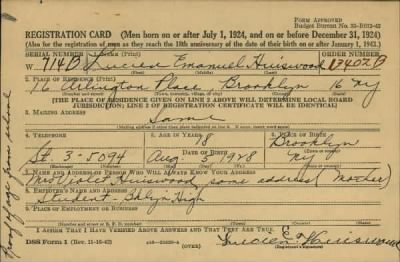 FORM APPROVED
Budget Bureau No. 33-R012-42
REGISTRATION CARD (Men born on or after July 1, 1924, and on or before December 31, 1924)
(Also for the registration of men as they reach the 18th anniversary of the date of their birth on or after January 1, 1943.)
SERIAL NUMBER 1. NAME (Print) ORDER NUMBER
W 714B Lucien Emanuel Huiswood 13402B
(First) (Middle) (Last)
2. PLACE OF RESIDENCE (Print)
16 Arlington Place Brooklyn 16 NY
[THE PLACE OF RESIDENCE GIVEN ON LINE 2 ABOVE WILL DETERMINE LOCAL BOARD
JURISDICTION; LINE 2 OF REGISTRATION CERTIFICATE WILL BE IDENTICAL]
3. MAILING ADDRESS
Same
[Mailing address if other than place indicated on line 2. If same, insert word same]
4. TELEPHONE 5. AGE IN YEARS 6. PLACE OF BIRTH
18 Brooklyn
DATE OF BIRTH
St. 3-5094 Aug 5 1928 NY
7. NAME AND ADDRESS OF PERSON WHO WILL ALWAYS KNOW YOUR ADDRESS
Mrs Violet Huiswood, same address (Mother)
8. EMPLOYER'S NAME AND ADDRESS
Student - Bklyn High
9. PLACE OF EMPLOYMENT OR BUSINESS
I AFFIRM THAT I HAVE VERIFIED ABOVE ANSWERS AND THAT THEY ARE TRUE.
DSS Form 1 (Rev. 11-16-42) (OVER) Lucien E. Huiswood
(Registrant's signature)
Proof of age from school